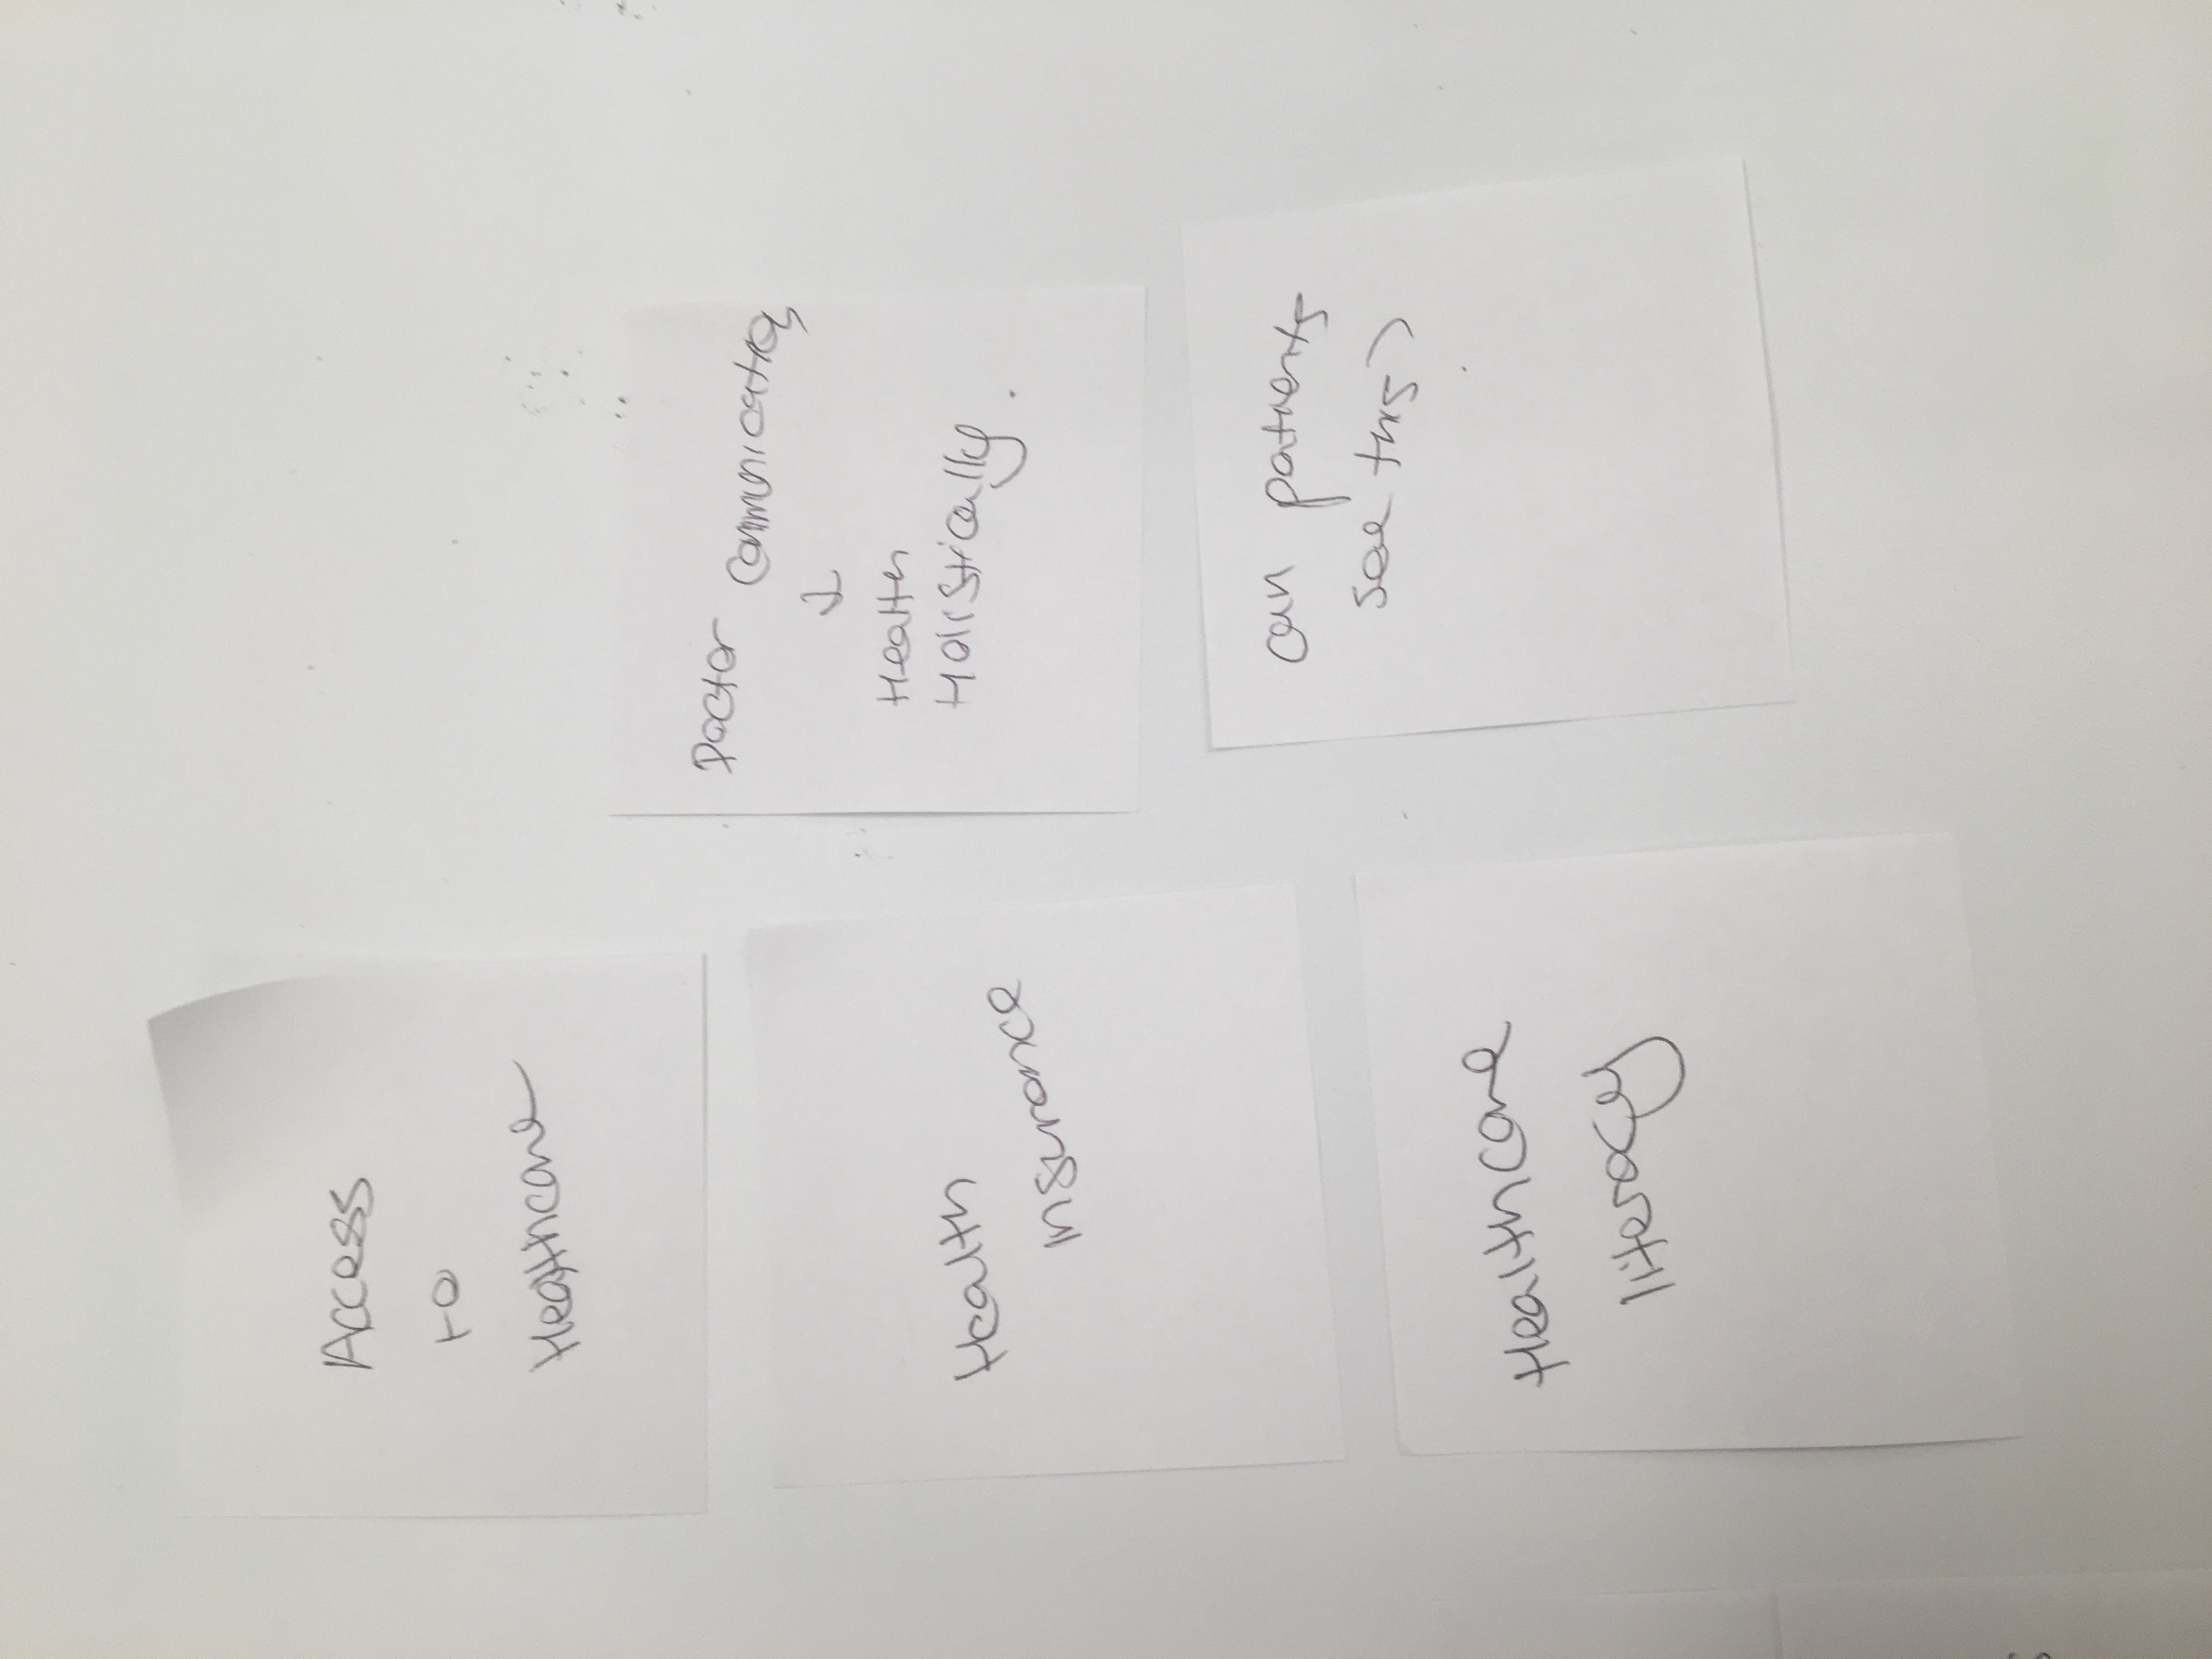 Access
to
Healthcare
Health
insurance
Healthcare
literacy
Doctor Communication
↓
Health
Holistically.
can patients
see this?